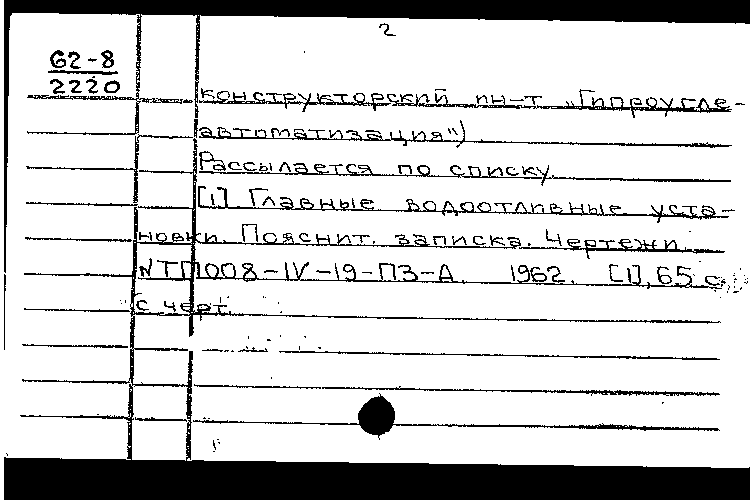 2
62-8
2220
конструкторский ин-т „Гипроугле-
автоматизация")
Рассылается по списку.
[1] Главные водоотливные уста-
новки. Пояснит. записка. Чертежи.
NТП008-IV-19-ПЗ-А. 1962. [1], 65 с.
с черт.